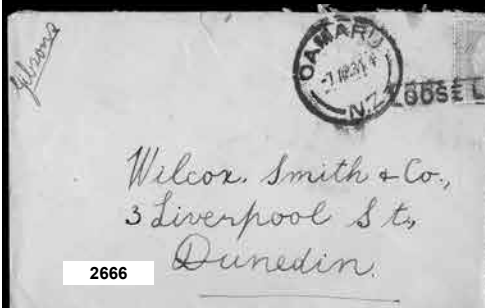 Gibsons
OAMARU
N.Z.
LOOSE L
Wilcox. Smith & Co.,
3 Liverpool St.,
Dunedin.
2666